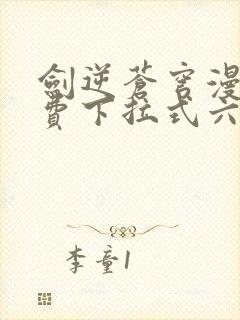 劍逆蒼穹漫
費下拉式六
李童1